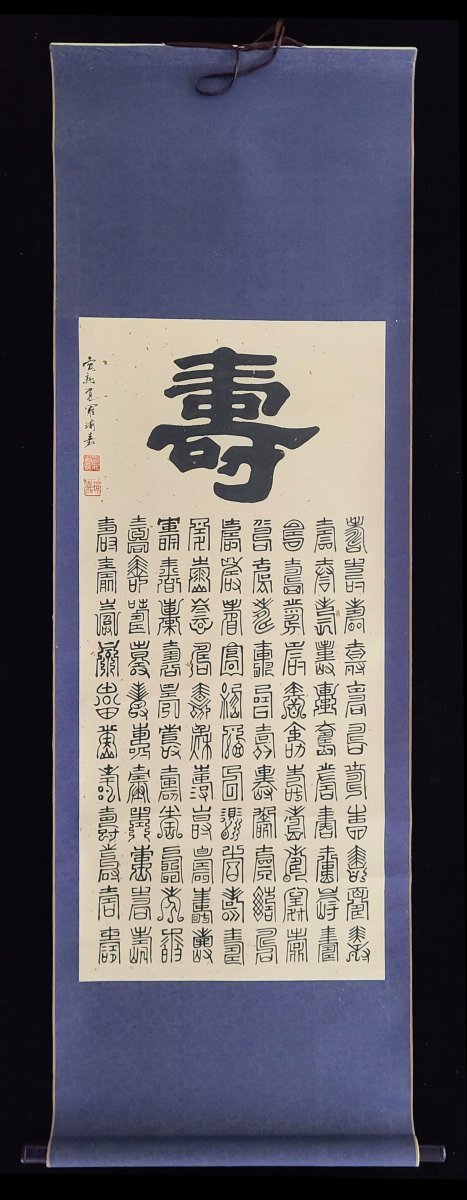 壽
壽壽壽壽壽壽壽壽壽壽壽
壽壽壽壽壽壽壽壽壽壽壽
壽壽壽壽壽壽壽壽壽壽壽
壽壽壽壽壽壽壽壽壽壽壽
壽壽壽壽壽壽壽壽壽壽壽
壽壽壽壽壽壽壽壽壽壽壽
壽壽壽壽壽壽壽壽壽壽壽
壽壽壽壽壽壽壽壽壽壽壽
壽壽壽壽壽壽壽壽壽壽壽
愛新覺羅嘉